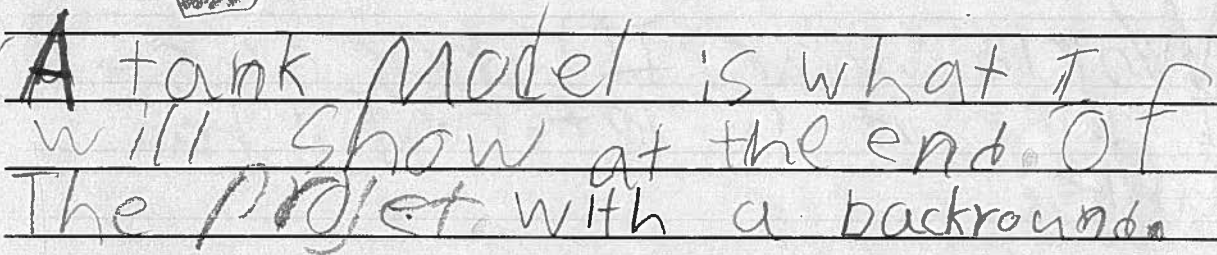 A tank Model is what I
will show at the end. Of
The Projet with a backround.